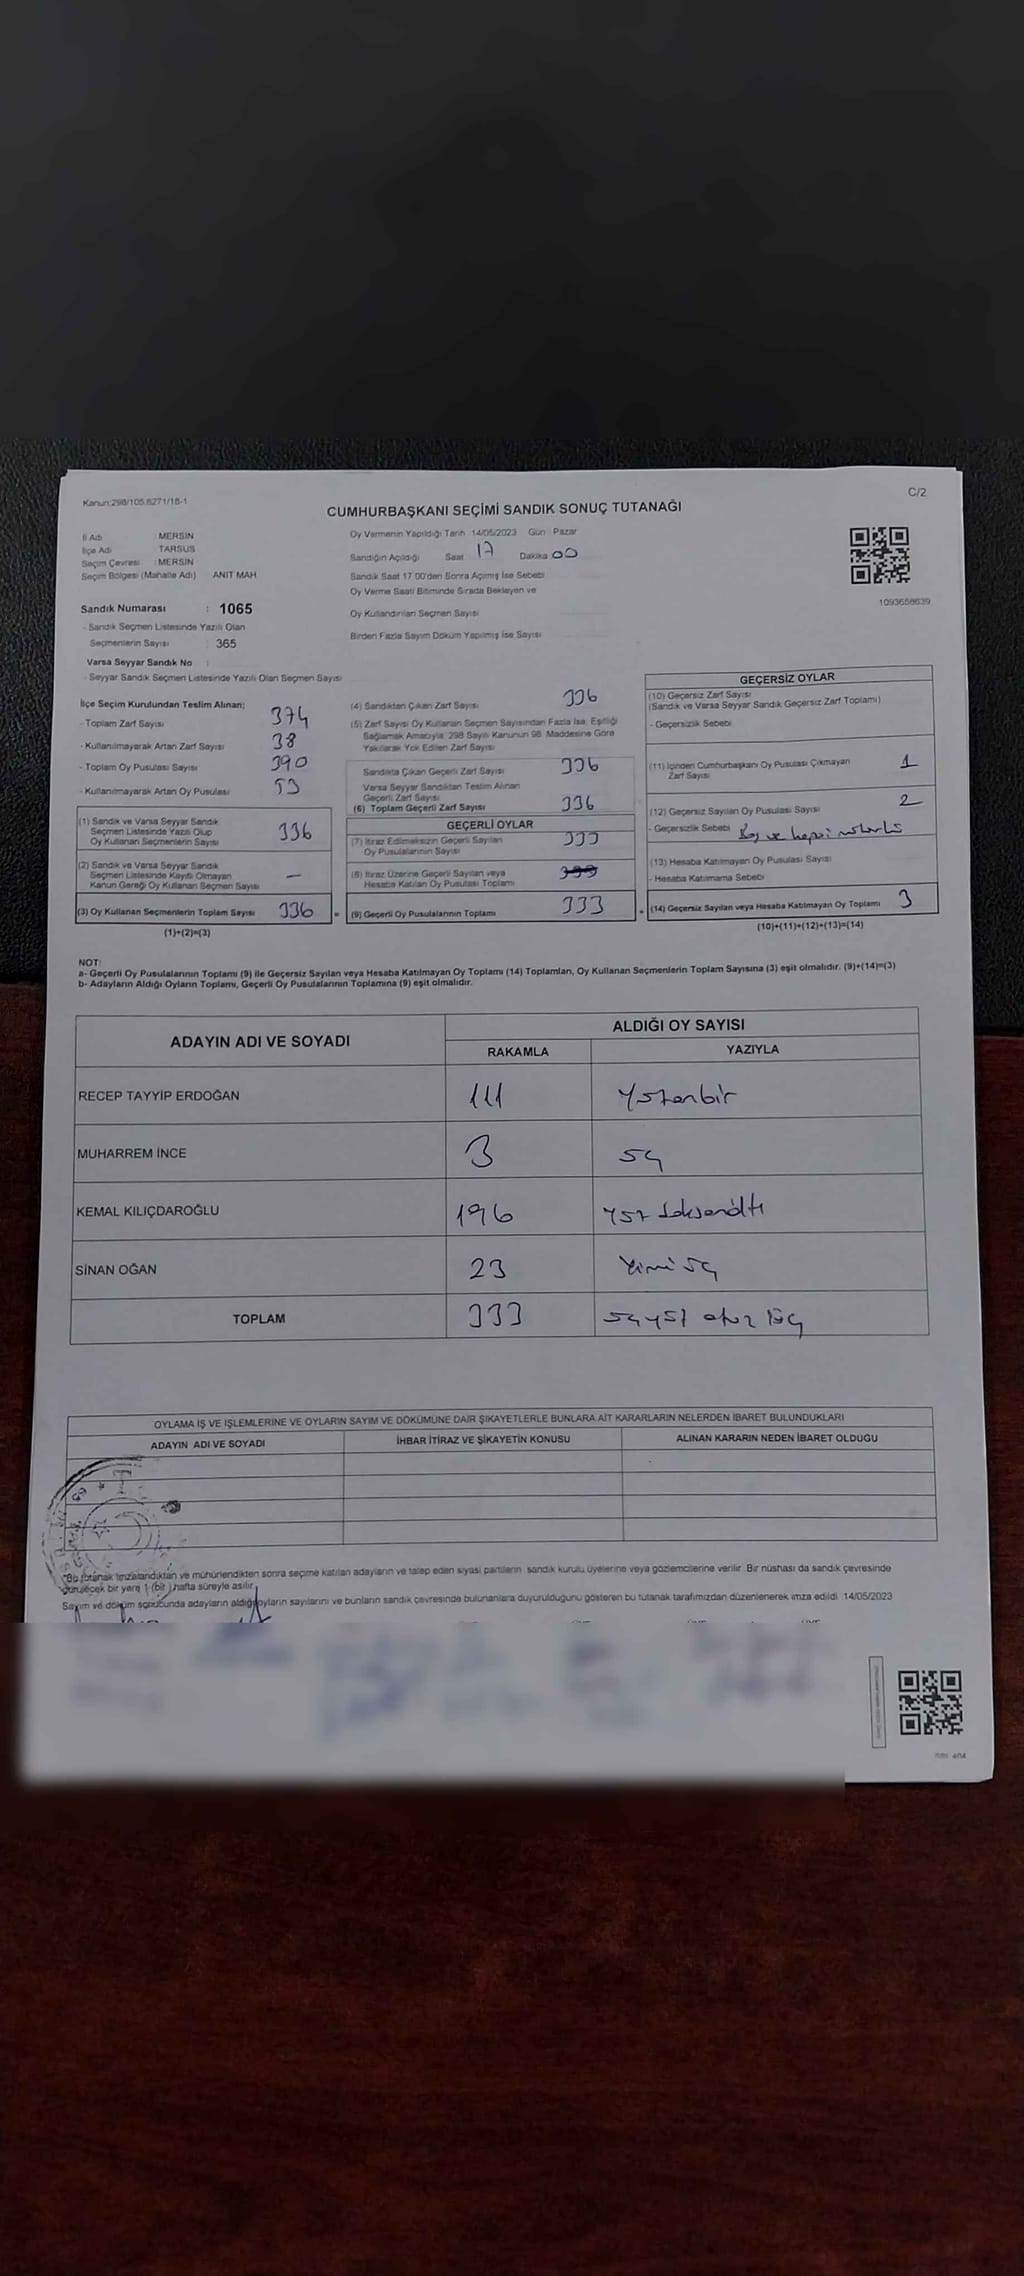 Kanun:298/105,6271/18-1
C/2
CUMHURBAŞKANI SEÇİMİ SANDIK SONUÇ TUTANAĞI
İl Adı MERSİN
İlçe Adı TARSUS
Seçim Çevresi : MERSİN
Seçim Bölgesi (Mahalle Adı) ANIT MAH
Oy Vermenin Yapıldığı Tarih 14/05/2023 Gün : Pazar
Sandığın Açıldığı Saat 17 Dakika 00
Sandık Saat 17.00'den Sonra Açılmış İse Sebebi
Oy Verme Saati Bitiminde Sırada Bekleyen ve
Oy Kullandırılan Seçmen Sayısı
Birden Fazla Sayım Döküm Yapılmış İse Sayısı
1093658639
Sandık Numarası : 1065
- Sandık Seçmen Listesinde Yazılı Olan
Seçmenlerin Sayısı : 365
Varsa Seyyar Sandık No :
- Seyyar Sandık Seçmen Listesinde Yazılı Olan Seçmen Sayısı
İlçe Seçim Kurulundan Teslim Alınan;
- Toplam Zarf Sayısı 374
- Kullanılmayarak Artan Zarf Sayısı 38
- Toplam Oy Pusulası Sayısı 390
- Kullanılmayarak Artan Oy Pusulası 53
(1) Sandık ve Varsa Seyyar Sandık
Seçmen Listesinde Yazılı Olup
Oy Kullanan Seçmenlerin Sayısı 336
(2) Sandık ve Varsa Seyyar Sandık
Seçmen Listesinde Kayıtlı Olmayan
Kanun Gereği Oy Kullanan Seçmen Sayısı —
(3) Oy Kullanan Seçmenlerin Toplam Sayısı 336 =
(1)+(2)=(3)
(4) Sandıktan Çıkan Zarf Sayısı 336
(5) Zarf Sayısı Oy Kullanan Seçmen Sayısından Fazla İse, Eşitliği
Sağlamak Amacıyla; 298 Sayılı Kanunun 98. Maddesine Göre
Yakılarak Yok Edilen Zarf Sayısı
Sandıkta Çıkan Geçerli Zarf Sayısı 336
Varsa Seyyar Sandıktan Teslim Alınan
Geçerli Zarf Sayısı
(6) Toplam Geçerli Zarf Sayısı 336
GEÇERLİ OYLAR
(7) İtiraz Edilmeksizin Geçerli Sayılan
Oy Pusulalarının Sayısı 333
(8) İtiraz Üzerine Geçerli Sayılan veya
Hesaba Katılan Oy Pusulası Toplamı
(9) Geçerli Oy Pusulalarının Toplamı 333 +
GEÇERSİZ OYLAR
(10) Geçersiz Zarf Sayısı
(Sandık ve Varsa Seyyar Sandık Geçersiz Zarf Toplamı)
- Geçersizlik Sebebi
(11) İçinden Cumhurbaşkanı Oy Pusulası Çıkmayan
Zarf Sayısı 1
(12) Geçersiz Sayılan Oy Pusulası Sayısı 2
- Geçersizlik Sebebi Boş ve hepsi mühürlü
(13) Hesaba Katılmayan Oy Pusulası Sayısı
- Hesaba Katılmama Sebebi
(14) Geçersiz Sayılan veya Hesaba Katılmayan Oy Toplamı 3
(10)+(11)+(12)+(13)=(14)
NOT:
a- Geçerli Oy Pusulalarının Toplamı (9) ile Geçersiz Sayılan veya Hesaba Katılmayan Oy Toplamı (14) Toplamları, Oy Kullanan Seçmenlerin Toplam Sayısına (3) eşit olmalıdır. (9)+(14)=(3)
b- Adayların Aldığı Oyların Toplamı, Geçerli Oy Pusulalarının Toplamına (9) eşit olmalıdır.
ADAYIN ADI VE SOYADI ALDIĞI OY SAYISI
RAKAMLA YAZIYLA
RECEP TAYYİP ERDOĞAN 111 Yüzonbir
MUHARREM İNCE 3 üç
KEMAL KILIÇDAROĞLU 196 yüz doksanaltı
SİNAN OĞAN 23 Yirmi üç
TOPLAM 333 üçyüz otuz üç
OYLAMA İŞ VE İŞLEMLERİNE VE OYLARIN SAYIM VE DÖKÜMÜNE DAİR ŞİKAYETLERLE BUNLARA AİT KARARLARIN NELERDEN İBARET BULUNDUKLARI
ADAYIN ADI VE SOYADI İHBAR İTİRAZ VE ŞİKAYETİN KONUSU ALINAN KARARIN NEDEN İBARET OLDUĞU
Bu tutanak imzalandıktan ve mühürlendikten sonra seçime katılan adayların ve talep eden siyasi partilerin sandık kurulu üyelerine veya gözlemcilerine verilir. Bir nüshası da sandık çevresinde
görülecek bir yere 1 (bir) hafta süreyle asılır.
Sayım ve döküm sonucunda adayların aldığı oyların sayılarını ve bunların sandık çevresinde bulunanlara duyurulduğunu gösteren bu tutanak tarafımızdan düzenlenerek imza edildi 14/05/2023